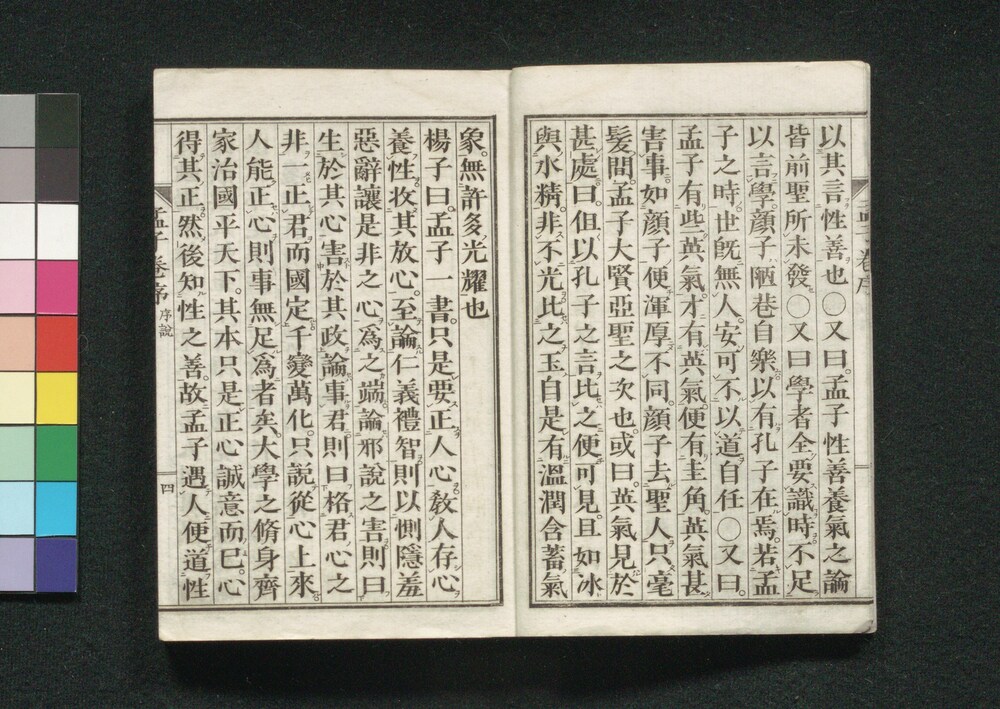 以其言性善也〇又曰。孟子性善養氣之論
皆前聖所未發〇又曰學者全要識時。不足
以言學。顏子陋巷自樂。以有孔子在焉。若孟
子之時。世旣無人。安可不以道自任〇又曰。
孟子有些英氣。才有英氣。便有圭角。英氣甚
害事。如顏子便渾厚不同。顏子去聖人只毫
髮間。孟子大賢亞聖之次也。或曰。英氣見於
甚處。曰。但以孔子之言比之。便可見。且如冰
與水精。非不光。比之玉。自是有溫潤含蓄氣
象。無許多光耀也
楊子曰。孟子一書。只是要正人心。敎人存心
養性。收其放心。至論仁義禮智。則以惻隱羞
惡辭讓是非之心爲之端。論邪說之害。則曰
生於其心。害於其政。論事君則曰格君心之
非。一正君而國定。千變萬化。只說從心上來
人能正心。則事無足爲者矣。大學之脩身齊
家治國平天下。其本只是正心誠意而已。心
得其正。然後知性之善。故孟子遇人便道性
孟子 卷序 序說
四